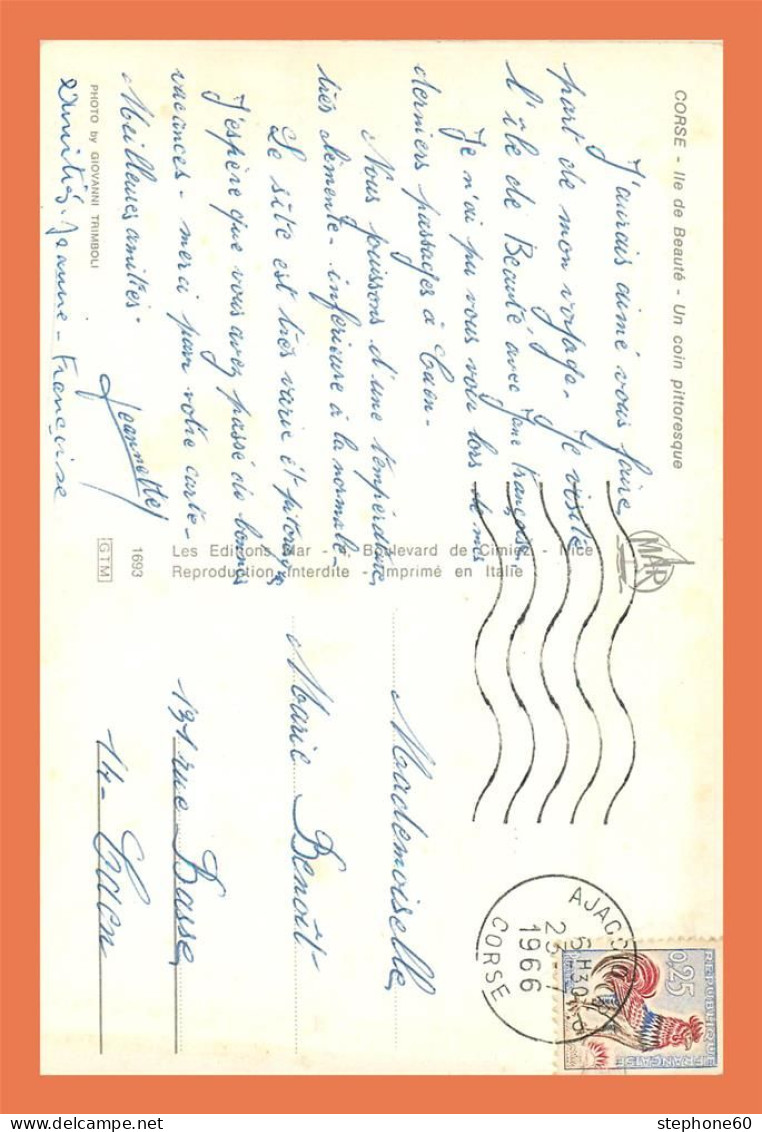 CORSE - Ile de Beauté - Un coin pittoresque
J'aurais aimé vous faire
part de mon voyage. Je visite
l'île de Beauté avec Françoise
Je n'ai pu vous voir lors de mes
derniers passages à Caen -
Nous jouissons d'une température
très clémente - inférieure à la normale -
Le site est très varié et pittoresque
J'espère que vous avez passé de bonnes
vacances - merci pour votre carte -
Meilleures amitiés -
Jeannette
Amitiés. Jeanne - Françoise
PHOTO by GIOVANNI TRIMBOLI
MAR
Les Editions Mar - Boulevard de Cimiez - Nice
Reproduction Interdite - Imprimé en Italie
1693
GTM
AJACCIO
6H30
23-
1966
CORSE
0,25
REPUBLIQUE
FRANCAISE
Mademoiselle
Marie Benoît
131 rue Basse
14 - Caen
stephone60